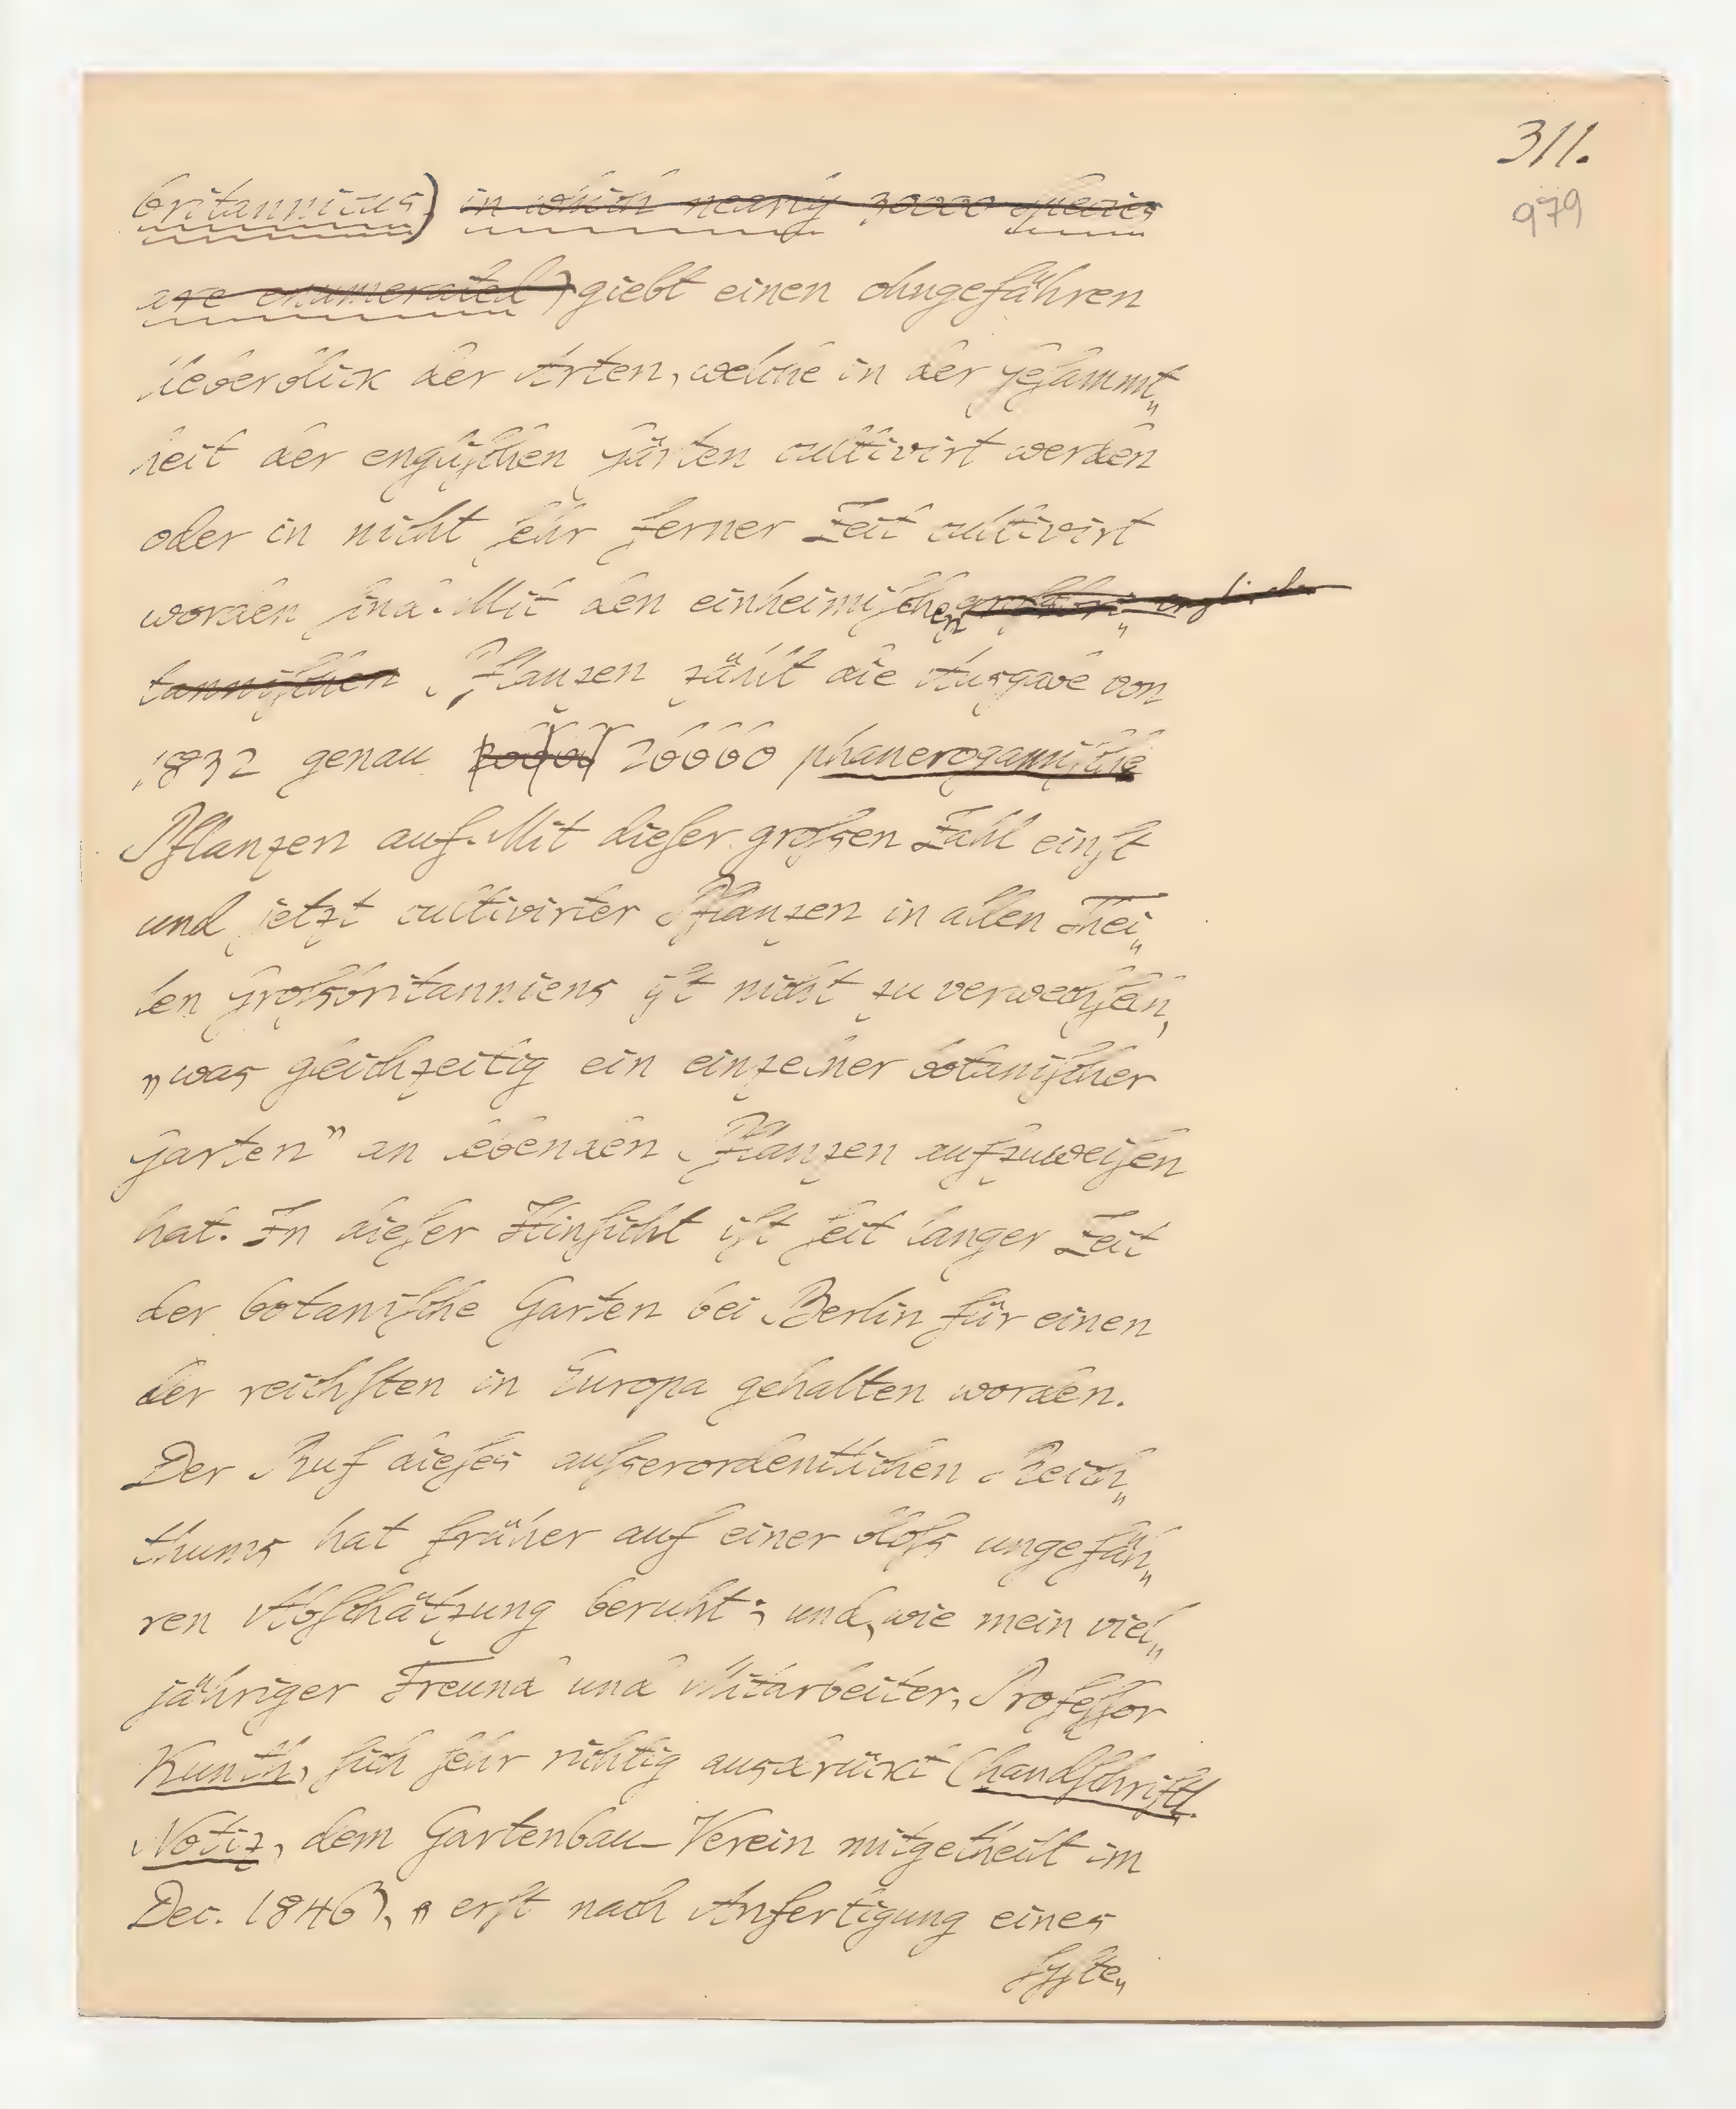 311.
979
britannicus) in which nearly 30000 species
are enumerated) giebt einen ohngefähren
Ueberblick der Arten, welche in der Gesammt„
heit der englischen Gärten cultivirt werden
oder in nicht sehr ferner Zeit cultivirt
worden sind. Mit den einheimischen
tannischen Pflanzen zählt die Ausgabe von
1832 genau 26660 phanerogamische
Pflanzen auf. Mit dieser großen Zahl einst
und jetzt cultivirter Pflanzen in allen Thei„
len Großbritanniens ist nicht zu verwechseln,
„was gleichzeitig ein einzelner botanischer
Garten” an lebenden Pflanzen aufzuweisen
hat. In dieser Hinsicht ist seit langer Zeit
der botanische Garten bei Berlin für einen
der reichsten in Europa gehalten worden.
Der Ruf dieses außerordentlichen Reich„
thums hat früher auf einer bloß ungefäh„
ren Abschätzung beruht; und, wie mein viel„
jähriger Freund und Mitarbeiter, Professor
Kunth, sich sehr richtig ausdrückt (handschriftl.
Notiz, dem Gartenbau-Verein mitgetheilt im
Dec. 1846), „ erst nach Anfertigung eines
syste„